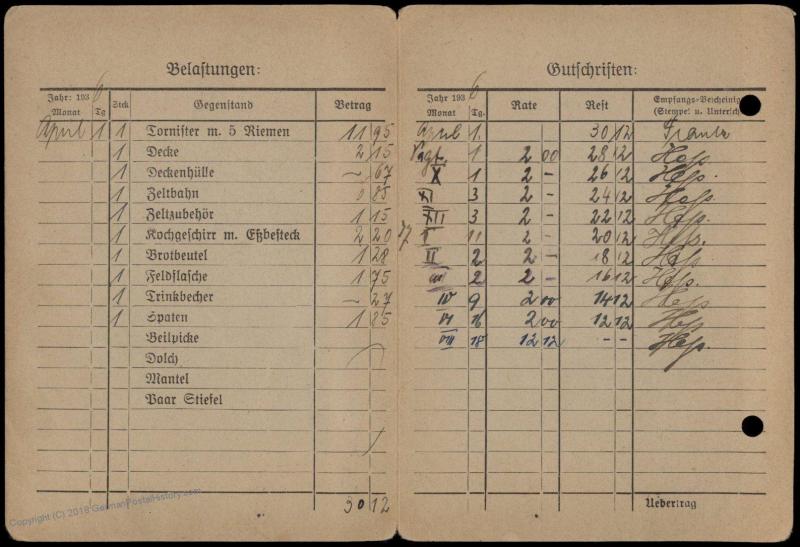 Belastungen:
Jahr: 1936 Monat Tg Stck Gegenstand Betrag
April 1 1 Tornister m. 5 Riemen 11 95
1 Decke 2 15
1 Deckenhülle – 67
1 Zeltbahn 0 85
1 Zeltzubehör 1 15
1 Kochgeschirr m. Eßbesteck 2 20
1 Brotbeutel 1 28
1 Feldflasche 1 75
1 Trinkbecher – 27
1 Spaten 1 85
Beilpicke
Dolch
Mantel
Paar Stiefel
30 12
Gutschriften:
Jahr 1936 Monat Tg. Rate Rest Empfangs-Bescheinig (Stempel u. Untersch
April 1. 30 12
1 2 00 28 12 Heß
X 1 2 – 26 12 Heß.
XI 3 2 – 24 12 Heß
XII 3 2 – 22 12 Heß
37 I 11 2 – 20 12 Heß.
II 2 2 – 18 12 Heß
III 2 2 – 16 12 Heß.
IV 9 2 00 14 12 Heß
VI 16 2 00 12 12 Heß
VIII 18 12 12 – – Heß.
Uebertrag
Copyright (C) 2018 GermanPostalHistory.com